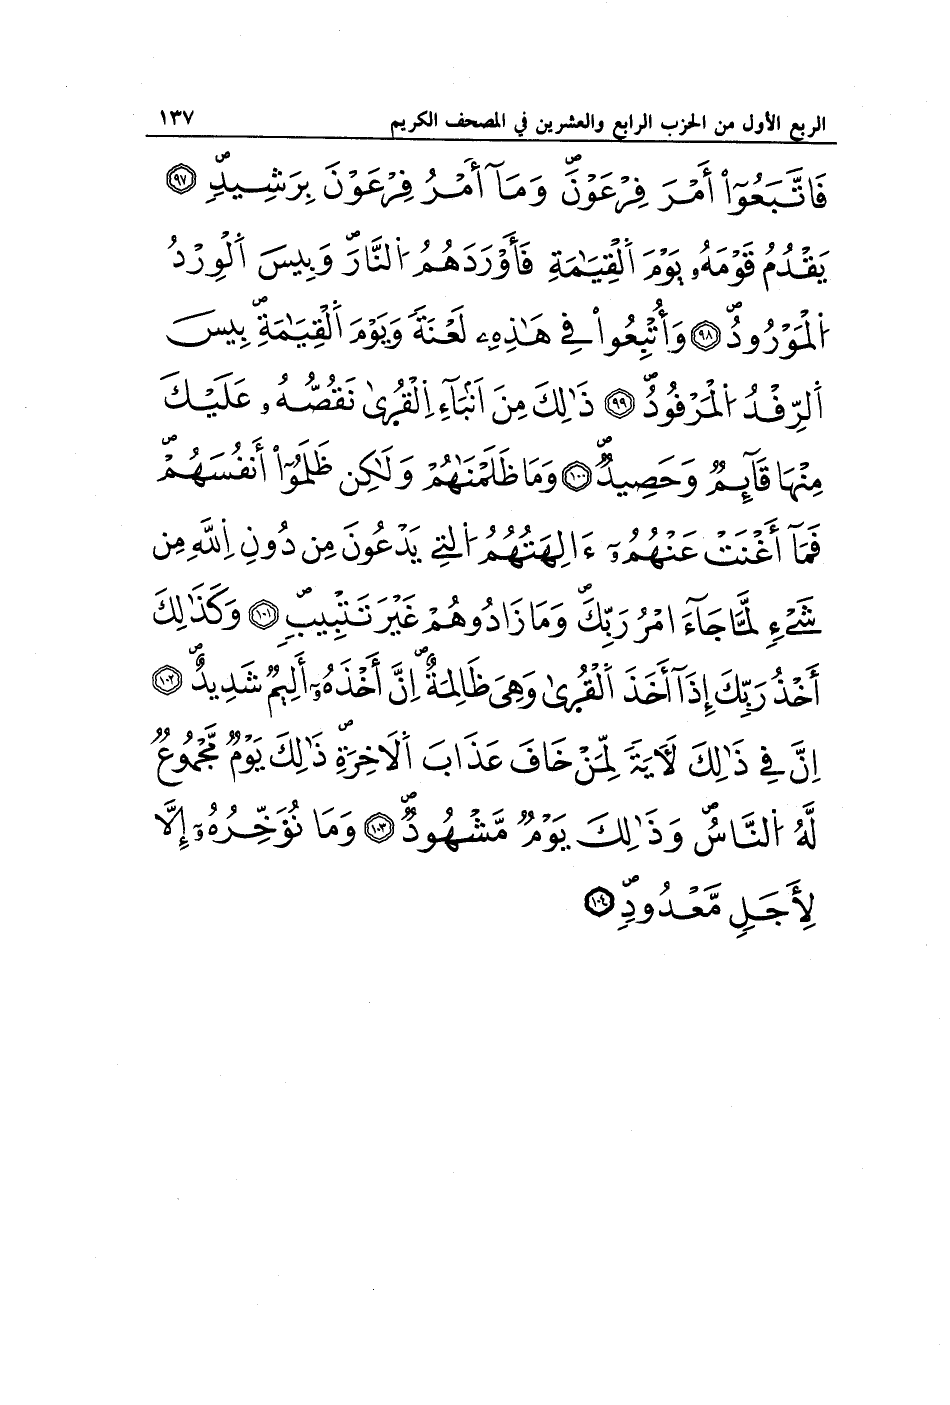 الربع الأول من الحزب الرابع والعشرين في المصحف الكريم ١٣٧
فَاتَّبَعُوٓاْ أَمْرَ فِرْعَوْنَۖ وَمَآ أَمْرُ فِرْعَوْنَ بِرَشِيدٖۖ ٩٧
يَقْدُمُ قَوْمَهُۥ يَوْمَ اَلْقِيَٰمَةِ فَأَوْرَدَهُمُ اُلنَّارَۖ وَبِيسَ اَلْوِرْدُ
اُلْمَوْرُودُۖ ٩٨ وَأُتْبِعُواْ فِے هَٰذِهِۦ لَعْنَةٗ وَيَوْمَ اَلْقِيَٰمَةِۖ بِيسَ
اَلرِّفْدُ اُلْمَرْفُودُۖ ٩٩ ذَٰلِكَ مِنَ اَنۢبَآءِ اِلْقُر۪ىٰ نَقُصُّهُۥ عَلَيْكَ
مِنْهَا قَآئِمٞ وَحَصِيدٞۖ ١٠٠ وَمَا ظَلَمْنَٰهُمْ وَلَٰكِن ظَلَمُوٓاْ أَنفُسَهُمْۖ
فَمَآ أَغْنَتْ عَنْهُمُۥٓ ءَالِهَتُهُمُ اُلتِے يَدْعُونَ مِن دُونِ اِللَّهِ مِن
شَےْءٖ لَّمَّا جَآءَ امْرُ رَبِّكَۖ وَمَا زَادُوهُمْ غَيْرَ تَتْبِيبٖۖ ١٠١ وَكَذَٰلِكَ
أَخْذُ رَبِّكَ إِذَآ أَخَذَ اَلْقُر۪ىٰ وَهِىَ ظَٰلِمَةٌۖ اِنَّ أَخْذَهُۥٓ أَلِيمٞ شَدِيدٌۖ ١٠٢
اِنَّ فِے ذَٰلِكَ لَأٓيَةٗ لِّمَنْ خَافَ عَذَابَ اَلَاخِرَةِۖ ذَٰلِكَ يَوْمٞ مَّجْمُوعٞ
لَّهُ اُلنَّاسُۖ وَذَٰلِكَ يَوْمٞ مَّشْهُودٞۖ ١٠٣ وَمَا نُؤَخِّرُهُۥٓ إِلَّا
لِأَجَلٖ مَّعْدُودٖۖ ١٠٤